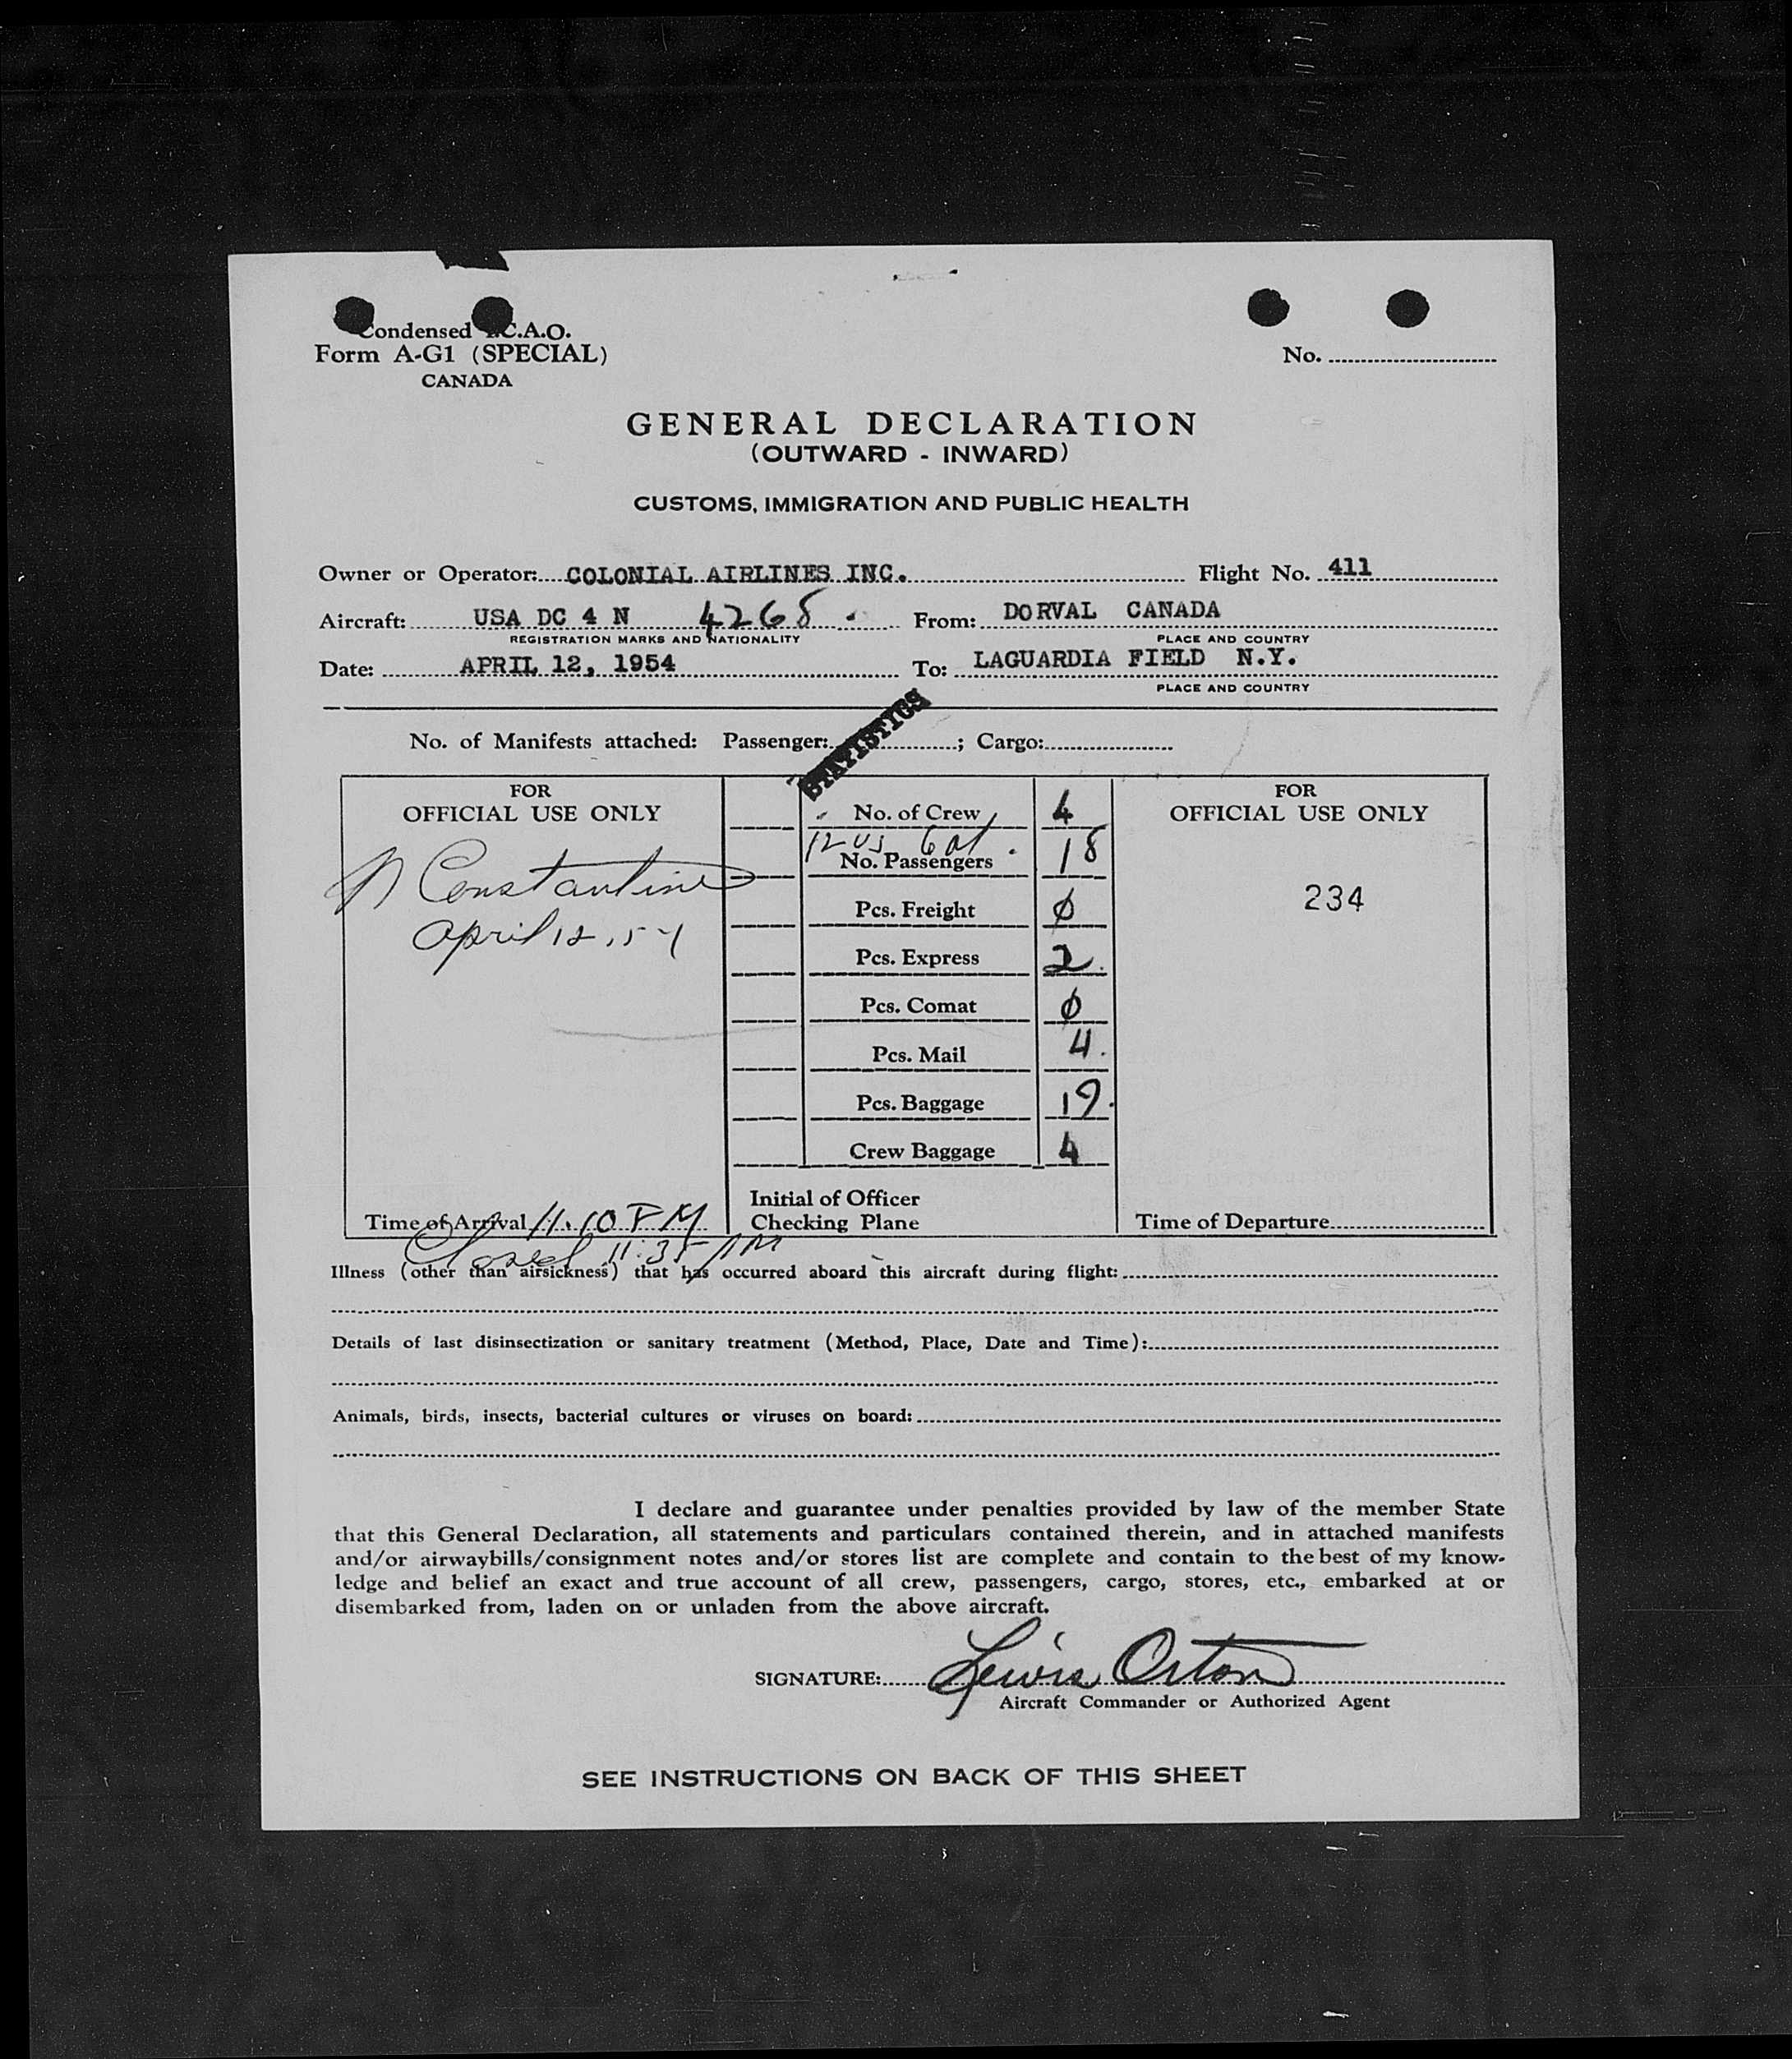 Condensed I.C.A.O.
Form A-G1 (SPECIAL)
CANADA
No.
GENERAL DECLARATION
(OUTWARD - INWARD)
CUSTOMS, IMMIGRATION AND PUBLIC HEALTH
Owner or Operator: COLONIAL AIRLINES INC. Flight No. 411
Aircraft: USA DC 4 N 4268 From: DORVAL CANADA
REGISTRATION MARKS AND NATIONALITY PLACE AND COUNTRY
Date: APRIL 12, 1954 To: LAGUARDIA FIELD N.Y.
PLACE AND COUNTRY
STATISTICS
No. of Manifests attached: Passenger: ; Cargo:
FOR
OFFICIAL USE ONLY
N Constantine
April 12, 54
Time of Arrival 11.10 PM
Closed 11:35 PM
No. of Crew 4
12 US 6 al
No. Passengers 18
Pcs. Freight 0
Pcs. Express 2
Pcs. Comat 0
Pcs. Mail 4
Pcs. Baggage 19
Crew Baggage 4
Initial of Officer
Checking Plane
FOR
OFFICIAL USE ONLY
234
Time of Departure
Illness (other than airsickness) that has occurred aboard this aircraft during flight:
Details of last disinsectization or sanitary treatment (Method, Place, Date and Time):
Animals, birds, insects, bacterial cultures or viruses on board:
I declare and guarantee under penalties provided by law of the member State
that this General Declaration, all statements and particulars contained therein, and in attached manifests
and/or airwaybills/consignment notes and/or stores list are complete and contain to the best of my know-
ledge and belief an exact and true account of all crew, passengers, cargo, stores, etc., embarked at or
disembarked from, laden on or unladen from the above aircraft.
SIGNATURE: Lewis Orton
Aircraft Commander or Authorized Agent
SEE INSTRUCTIONS ON BACK OF THIS SHEET